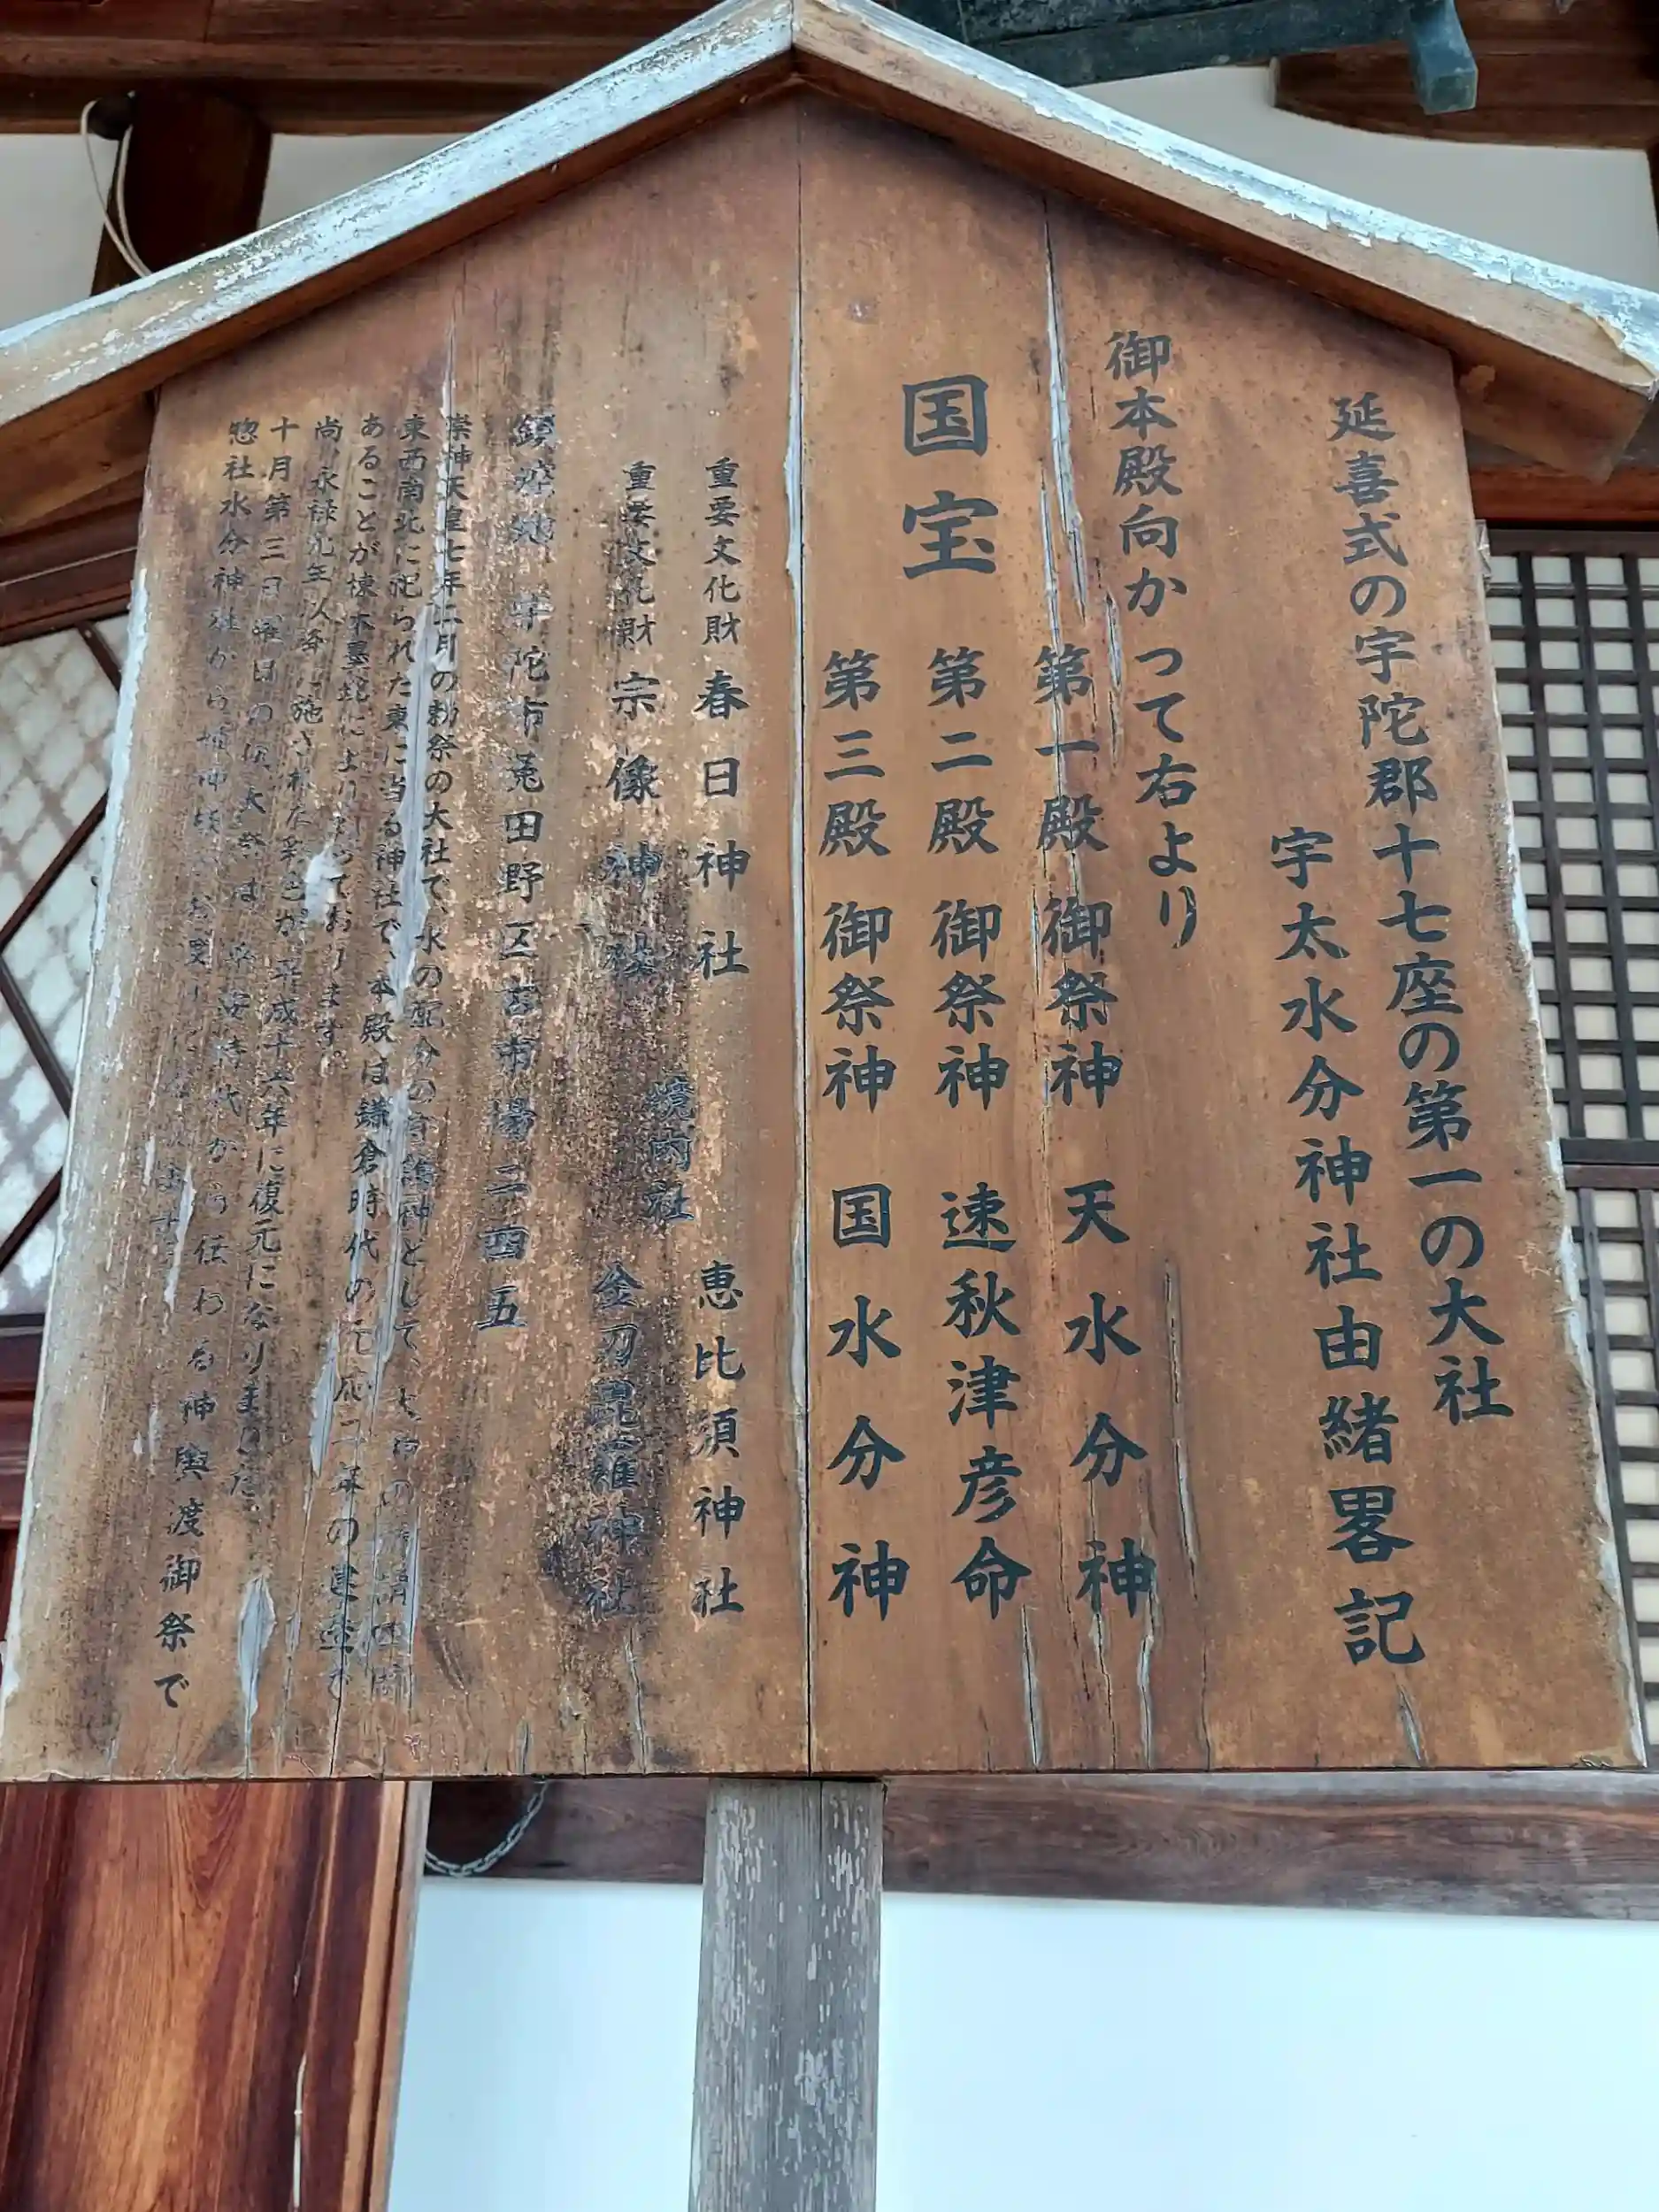 延喜式の宇陀郡十七座の第一の大社
宇太水分神社由緒畧記
御本殿向かって右より
国宝
第一殿 御祭神 天水分神
第二殿 御祭神 速秋津彦命
第三殿 御祭神 国水分神
重要文化財 春日神社
重要文化財 宗像神社
境内社
恵比須神社
金刀毘羅神社
鎮座地 宇陀市菟田野区古市場二四五
崇神天皇七年二月の勅祭の大社で、水の配分の
東西南北に祀られた東に当る神社で、本殿は鎌倉時代の元応二年の建立で
あることが棟木墨銘により
尚、永禄九年以来、施された彩色が平成十六年に復元になりました。
十月第三日曜日の秋大祭は 平安時代から伝わる神輿渡御祭で
惣社水分神社から